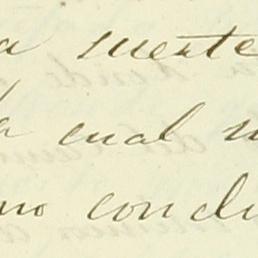 a suerte
la cual n
no conclu